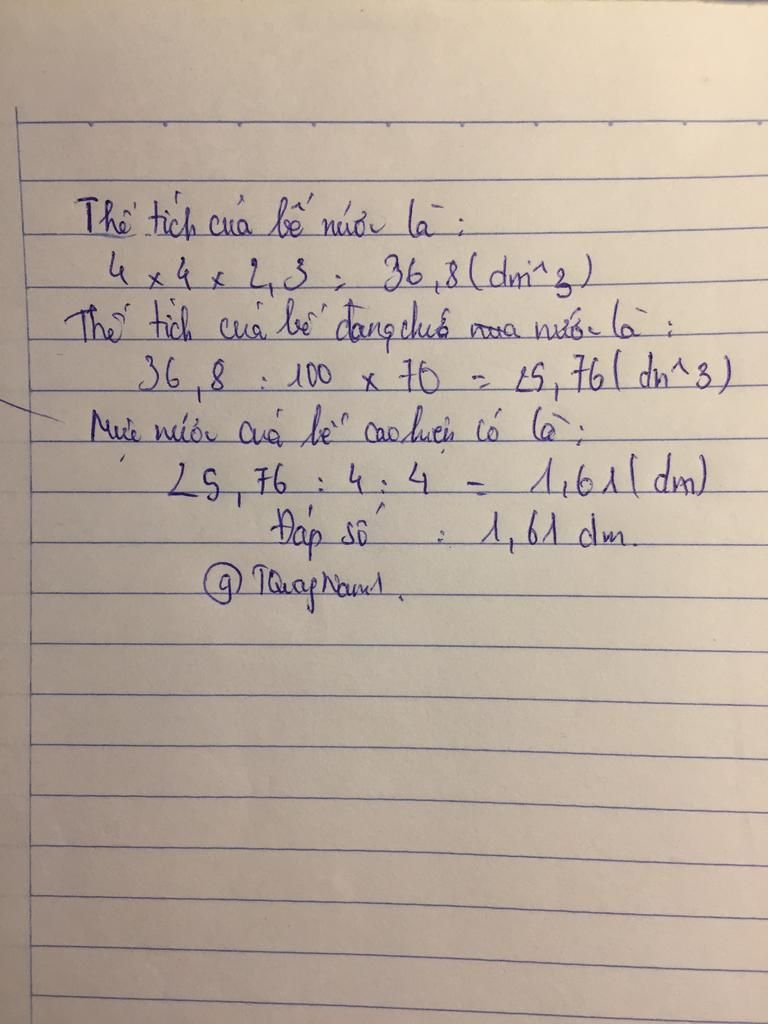 Thể tích của bể nước là :
4 x 4 x 2,3 = 36,8 (dm^3)
Thể tích của bể đang chứa nước là :
36,8 : 100 x 70 = 25,76 (dm^3)
Mực nước của bể cao hiện có là :
25,76 : 4 : 4 = 1,61 (dm)
Đáp số : 1,61 dm.
@TQuagNam1.